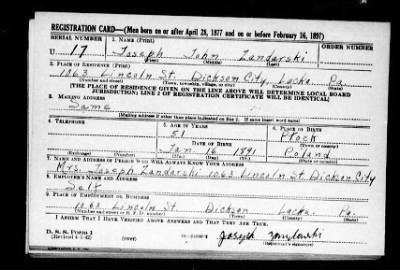 REGISTRATION CARD—(Men born on or after April 28, 1877 and on or before February 16, 1897)
SERIAL NUMBER 1. NAME (Print) ORDER NUMBER
U 17 Joseph John Zandarski
(First) (Middle) (Last)
2. PLACE OF RESIDENCE (Print)
1063 Lincoln St. Dickson City, Lacka. Pa.
(Number and street) (Town, township, village, or city) (County) (State)
[THE PLACE OF RESIDENCE GIVEN ON THE LINE ABOVE WILL DETERMINE LOCAL BOARD
JURISDICTION; LINE 2 OF REGISTRATION CERTIFICATE WILL BE IDENTICAL]
3. MAILING ADDRESS
Same
[Mailing address if other than place indicated on line 2. If same insert word same]
4. TELEPHONE 5. AGE IN YEARS 6. PLACE OF BIRTH
51 Plock
DATE OF BIRTH (Town or county)
Jan 16 1891 Poland
(Exchange) (Number) (Mo.) (Day) (Yr.) (State or country)
7. NAME AND ADDRESS OF PERSON WHO WILL ALWAYS KNOW YOUR ADDRESS
Mrs. Joseph Zandarski 1063 Lincoln St Dickson City
8. EMPLOYER'S NAME AND ADDRESS
Self
9. PLACE OF EMPLOYMENT OR BUSINESS
1063 Lincoln St Dickson Lacka. Pa.
(Number and street or R. F. D. number) (Town) (County) (State)
I AFFIRM THAT I HAVE VERIFIED ABOVE ANSWERS AND THAT THEY ARE TRUE.
D. S. S. Form 1
(Revised 4-1-42) (over) Joseph
(Registrant's signature)